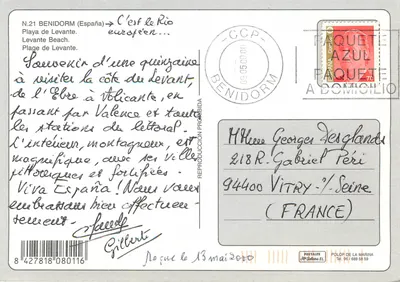 N.21 BENIDORM (España) → C'est le Rio
Playa de Levante. européen...
Levante Beach.
Plage de Levante.
Souvenir d'une quinzaine
à visiter la côte du Levant,
de l'Ebre à Alicante, en
passant par Valence et toutes
les stations du littoral.
L'intérieur, montagneux, est
magnifique, avec ses villes
pittoresques et fortifiées.
Viva España! Nous vous
embrassons bien affectueu-
sement.
Gilbert
8 427818 080116
Reçue le 13 mai 2000
REPRODUCCION PROHIBIDA
CCP
BENIDORM
PAQUETE
AZUL
PAQUETE
A DOMICILIO
Mme Georges Desglands
218 R. Gabriel Péri
94400 VITRY s/ Seine
(FRANCE)